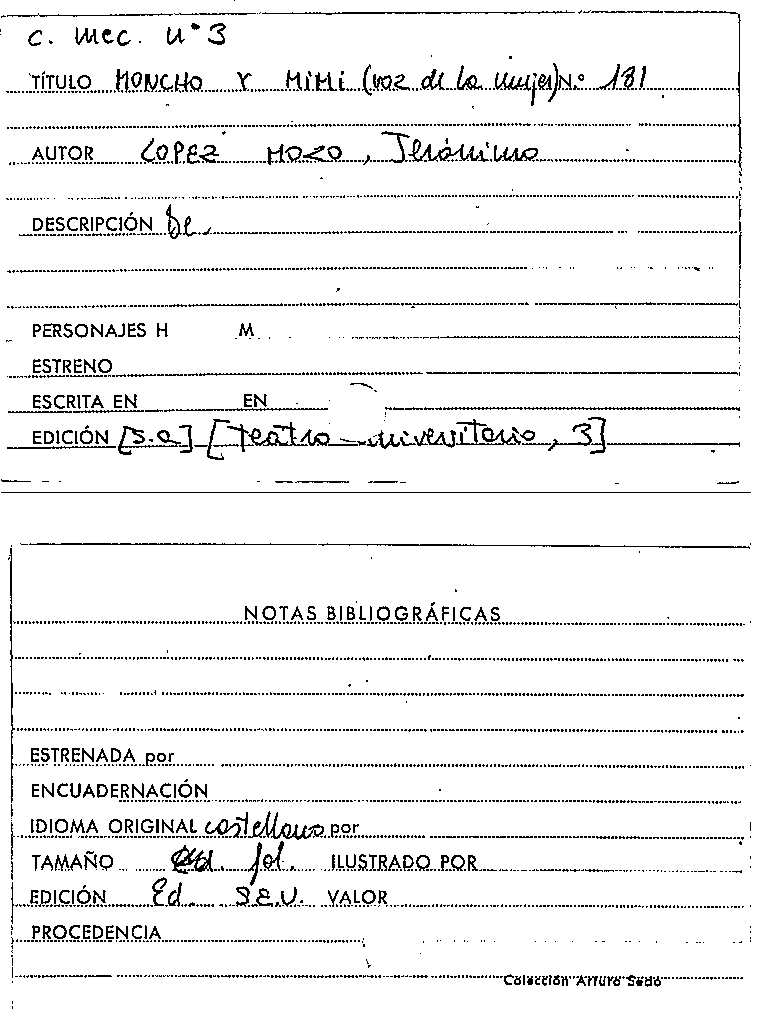 c. mec. nº 3
TÍTULO MONCHO Y MIMI (voz de la mujer) N.º 181
AUTOR LOPEZ MOZO, Jerónimo
DESCRIPCIÓN
PERSONAJES H M
ESTRENO
ESCRITA EN EN
EDICIÓN [S.a] [Teatro universitario, 3]
NOTAS BIBLIOGRÁFICAS
ESTRENADA por
ENCUADERNACIÓN
IDIOMA ORIGINAL castellano por
TAMAÑO fol. ILUSTRADO POR
EDICIÓN Ed. S.E.U. VALOR
PROCEDENCIA
Colección Arturo Sedó